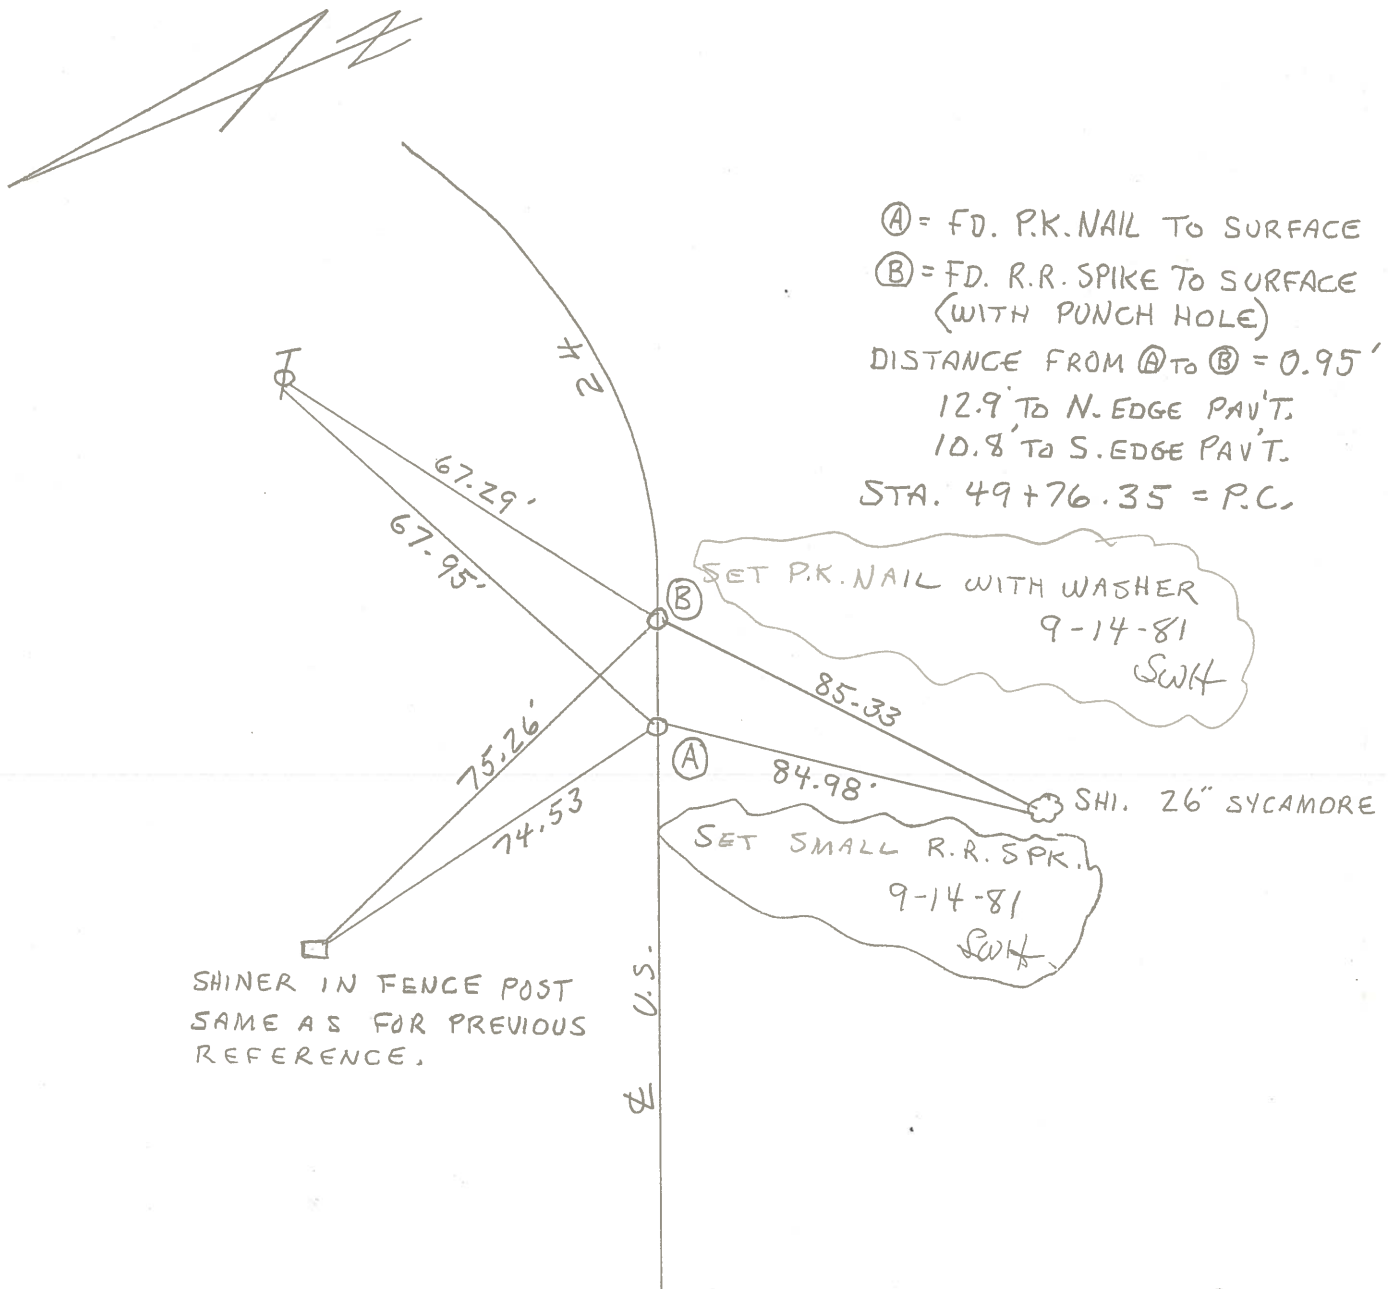 N
Ⓐ = FD. P.K. NAIL TO SURFACE
Ⓑ = FD. R.R. SPIKE TO SURFACE
(WITH PUNCH HOLE)
DISTANCE FROM Ⓐ TO Ⓑ = 0.95'
12.9' TO N. EDGE PAV'T.
10.8' TO S. EDGE PAV'T.
STA. 49+76.35 = P.C.
67.29'
67.95'
Ⓑ
SET P.K. NAIL WITH WASHER
9-14-81
SWH
85.33
75.26'
Ⓐ
84.98'
74.53
SHI. 26" SYCAMORE
SET SMALL R.R. SPK.
9-14-81
SWH
SHINER IN FENCE POST
SAME AS FOR PREVIOUS
REFERENCE.
℄ U.S. 24